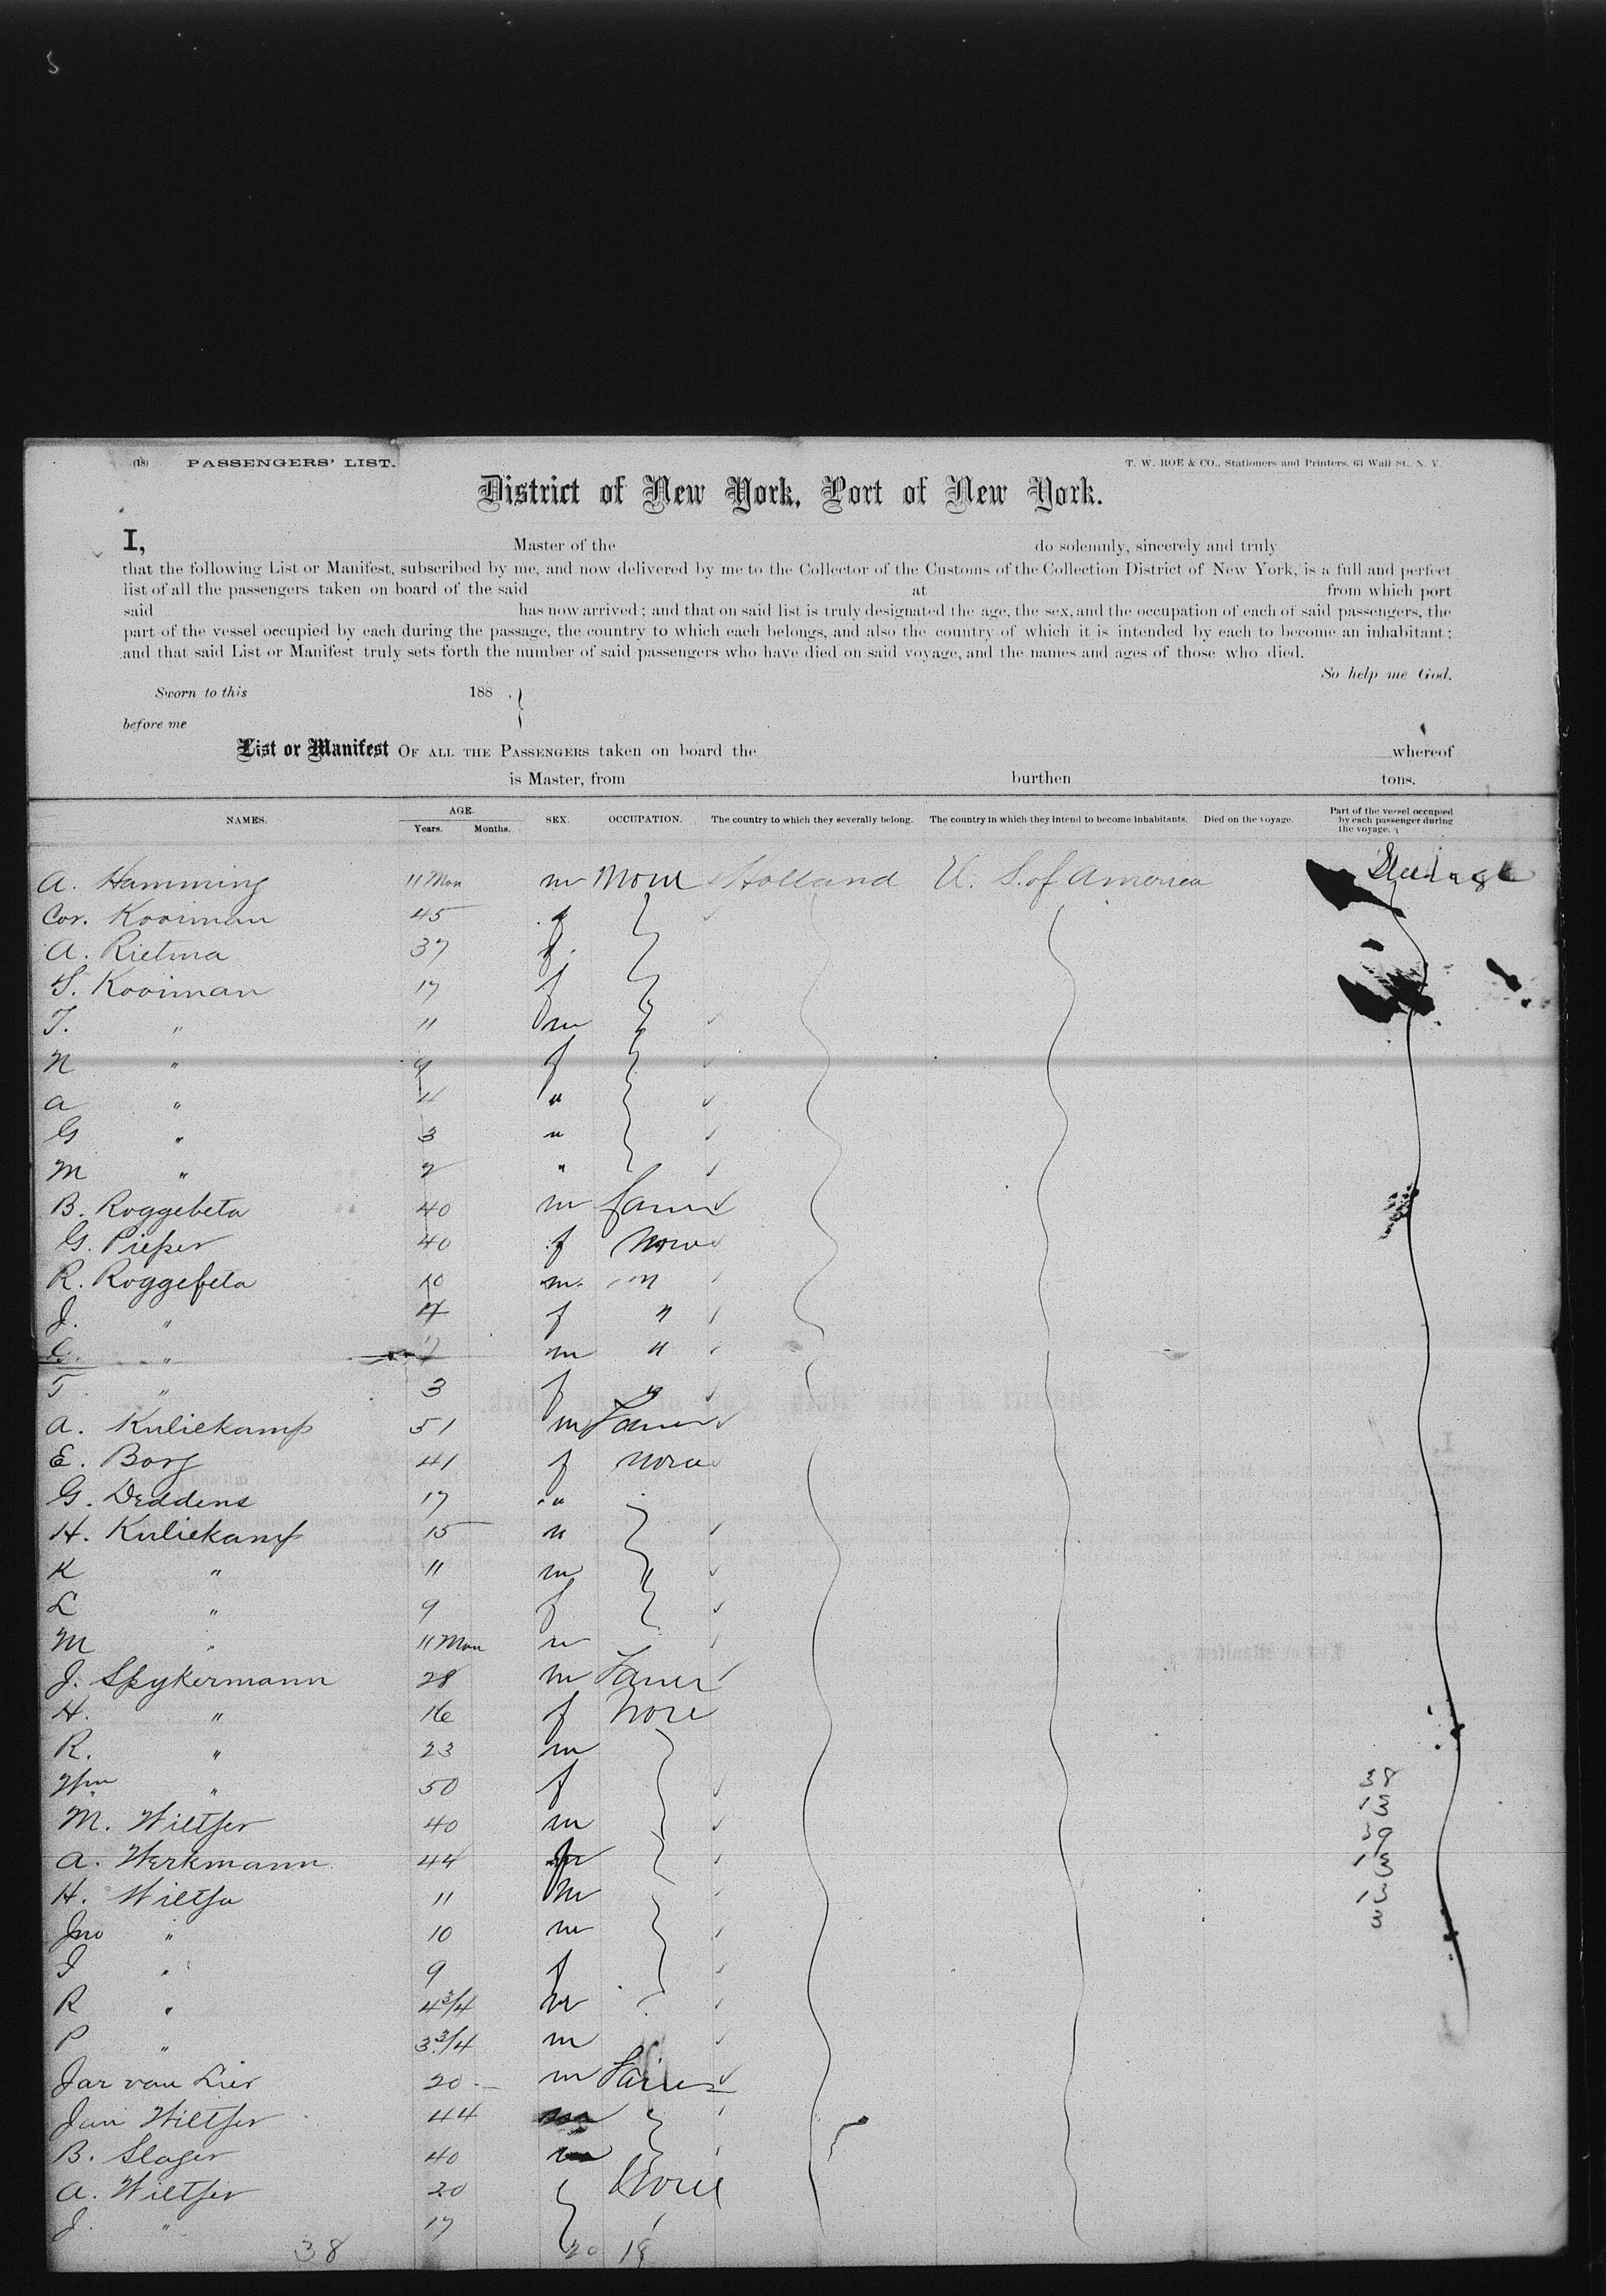 5
(18) PASSENGERS' LIST. T. W. ROE & CO., Stationers and Printers, 63 Wall St., N. Y.
District of New York, Port of New York.
I, Master of the do solemnly, sincerely and truly
that the following List or Manifest, subscribed by me, and now delivered by me to the Collector of the Customs of the Collection District of New York, is a full and perfect
list of all the passengers taken on board of the said at from which port
said has now arrived; and that on said list is truly designated the age, the sex, and the occupation of each of said passengers, the
part of the vessel occupied by each during the passage, the country to which each belongs, and also the country of which it is intended by each to become an inhabitant;
and that said List or Manifest truly sets forth the number of said passengers who have died on said voyage, and the names and ages of those who died.
So help me God.
Sworn to this 188 .
before me
List or Manifest OF ALL THE PASSENGERS taken on board the whereof
is Master, from burthen tons.
NAMES. AGE. Years. Months. SEX. OCCUPATION. The country to which they severally belong. The country in which they intend to become inhabitants. Died on the voyage. Part of the vessel occupied by each passenger during the voyage.
A. Hamming 11 Mon m None Holland U. S. of America Steerage
Cor. Kooiman 45 f
A. Rietma 37 f
S. Kooiman 17 f
T. " 11 m
N " 9 f
A " 4 "
G " 3 "
M " 2 "
B. Roggebeta 40 m Farmer
G. Pieper 40 f None
R. Roggebeta 10 m "
J. " 4 f "
G. " m "
T " 3 f "
A. Kuliekamp 51 m Farmer
E. Borg 41 f None
G. Deddens 17 "
H. Kuliekamp 15 "
K " 11 m
L " 9 f
M " 11 Mon m
J. Spykermann 28 m Farmer
H. " 16 f None
R. " 23 m
" 50 f
M. Wiltjer 40 m
A. Werkmann 44
H. Wiltje 11 m
Jno " 10 m
J " 9 f
R " 4 3/4 m
P " 3 3/4 m
Jar van Lier 20 m Farmer
Jan Wiltjer 44
B. Slager 40
A. Wiltjer 20 None
J. " 17
38 20 18
38
13
39
13
13
3